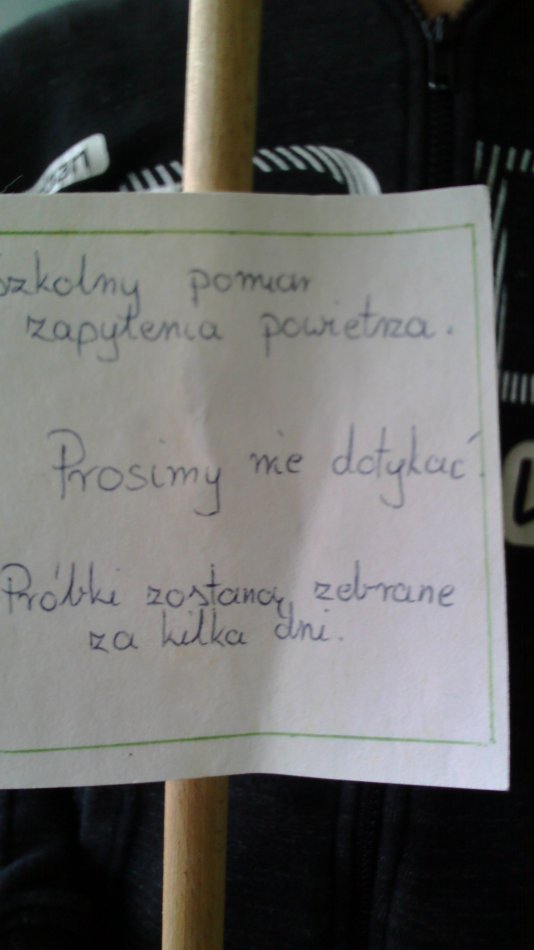 Szkolny pomiar
zapylenia powietrza.
Prosimy nie dotykać.
Próbki zostaną zebrane
za kilka dni.